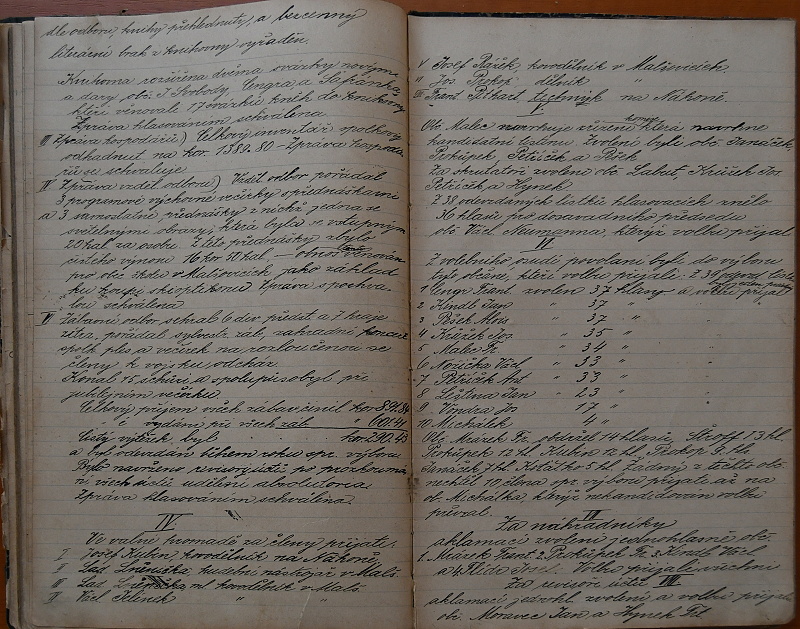 dle odboru, knihy přehlednuty, a bezcenný
literární brak z knihovny vyřaděn.
Knihovna rozšířena dvěma svazky novými
a dary obč. J Svobody, Cingra, a
kteří věnovali 17 svazků knih do knihovny
Zpráva hlasováním schválena.
III Zpráva hospodářů) Celkový inventář spolkový
odhadnut na kor. 1389.80 – Zpráva hospodá
řů se schvaluje
IV Zpráva vzděl odboru) Vzděl odbor pořádal
3 programové výchovné večírky s přednáškami
a 3 samostatné přednášky z nichž jedna se
světelnými obrazy, která byla se vstupným
20 hal za osobu. Z této přednášky zbylo
čistého výnosu 16 kor 50 hal. – obnos věnován
pro obč školu v Malšovicích jako základ
ku koupi skioptikonu Zpráva s pochva
lou schválena
V Zábavní odbor sehrál 6 div. předst. a 7 kraje
zítra, pořádal sylvestr. záb, zahradní koncert
spolk ples a večírek na rozloučenou se
členy k vojsku odcház.
Konal 15 schůzí, a spolupůsobyl při
jubilejním večírku
Celkový příjem všech zábav činil kor 891.84
" č vydání při všech záb. " 601.41
Čistý výtěžek byl kor 290.43
a byl odevzdán během roku spr. výboru
Bylo navrženo revisory účtů po prozkoumá
ní všech účtů udělení absolutoria.
Zpráva hlasováním schválena.
IV.
Ve valné hromadě za členy přijati:
I Josef Kuhn, kovodělník na Náhoně
II Lad hudební nástrojař v Malš.
III Lad kovodělník v Malš.
IV Václ Jelínek " "
V Josef Pařík, kovodělník v Malšovicích
" Jos Prokop dělník "
III Frant. Pithart technik na Náhoně.
I.
Ob. Malec navrhuje volení která navrhne
kandidátní listinu. Zvoleni byli obč. Janáček
Prokůpek Petříček a Pešek
Za skrutátory zvoleni obč. Labut Křížek Jos
Petříček a Hynek
Z 38 odevzdaných lístků hlasovacích znělo
36 hlasů pro dosavadního předsedu
ob Václ Neumanna, kterýž volbu přijal
II.
Z volebního osudí povoláni byli do výboru
byli občané, kteří volbu přijali. Z 39
1 Cingr Frant zvolen 37 hlasy. a volbu přijal
2 Kindl Jan " 37 "
3 Pešek Alois " 37 "
4 Křížek Jos " 35 "
5 Malec Fr. " 34 "
6 Nosička Václ " 33 "
7 Petříček Ant " 33 "
8 Ležtna Jan " 23 "
9 Vondra Jos " 17 "
10 Michálek 4 "
Ob. Mrázek Fr. obdržel 14 hlasů, Stroff 13 hl
Prokůpek 12 hl Kuhn 12 hl. Prokop 9 hl
Janáček 7 hl 5 hl. Žádný z těchto obč.
nechtěl 10 člena spr. výboru přijati až na
ob. Michálka, kterýž nekandidován volbu
převzal.
III
Za náhradníky
aklamací zvoleni jednohlasně obč.
1. Mrázek Frant 2. Prokůpek Fr. 3. Kindl Václ
a 4. Josef. Volbu přijali všichni
Za revisory účtů III
aklamací jednohl. zvoleni a volbu přijali
ob. Moravec Jan a Hynek Fd